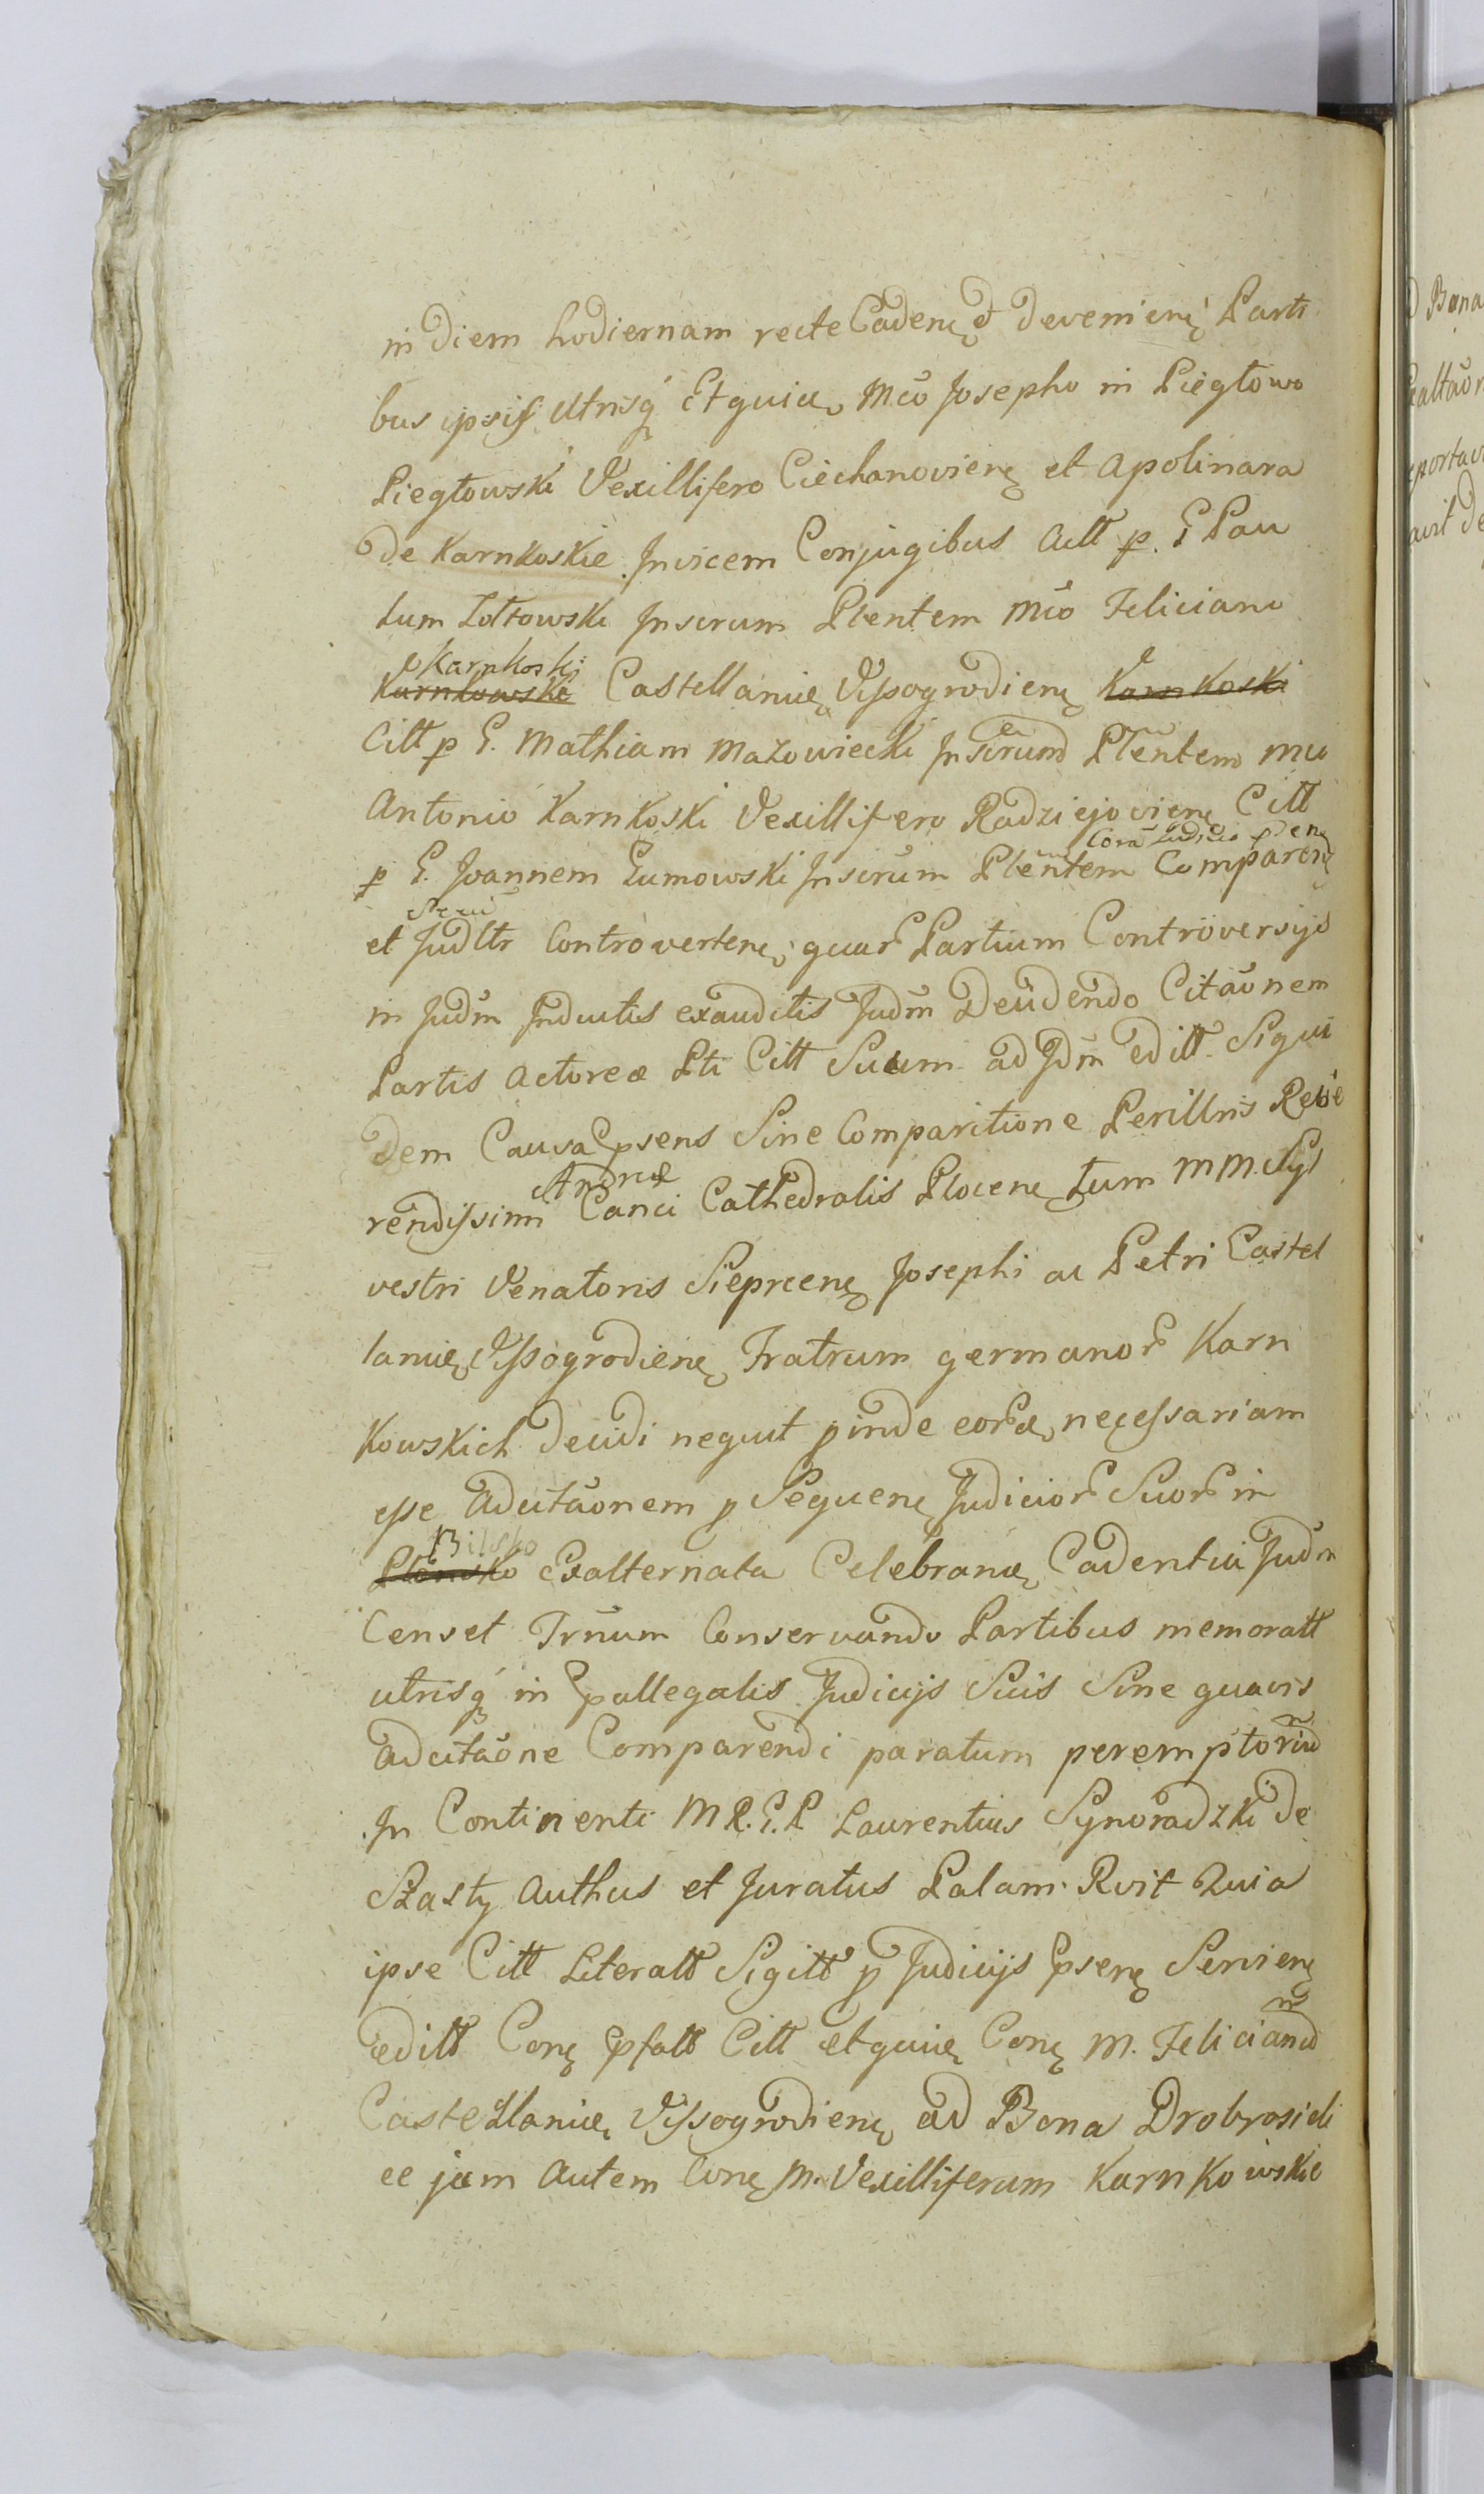 in Diem hodiernam recte Cadenę & Devenienę Parti
bus ipsis Utrisq́ Et quia, Mco Josepho in Piegłowo
Piegłowski Vexillifero Ciechanovienę et Apolinara
De Karnkoskie Invicem Conjugibus Actt p. G Pau
lum Zołtowski Inscrum Pltentem Mco Feliciano
Karnkoski
Karnkowski Castellanię, Vissogrodienę Karnkoski
Citt p G. Mathiam Mazowiecki Inscrum Pltentem Mco
Antonio Karnkoski Vexillifero Radziejovienę Citt
Corā Judicio
p G. Joannem Gumowski Inscrum Pltentem Comparenę
et Judltr Controvertenę, quar Partium Controversijs
in Judm Inductis exauditis Judm Decidendo Citaōnem
Partis Actoreæ Pti Citt Suum ad Jdm editt. Siqui
Dem Causa Psens Sine Comparitione Perillris Reve
Andreæ
rendissimi Canci Cathedralis Plocenę Tum MM. Syl
vestri Venatoris Sieprcenę Josephi ac Petri Castel
lanię, Vissogrodienę Fratrum germanor Karn
Kowskich Decidi nequit pinde eor necessariam
esse Adcitaōnem p Sequenę Judicior Suor in
Bilsko
Płonsko Exalternata Celebranę, Cadentia Judm
Censet Trnum Conservando Partibus memoratt
utrisq́ in Pallegatis Judicijs Suis Sine quavis
Adcitaōne Comparendi paratum peremptorium
In Continenti MR. G. P Laurentius Synoradzki De
Szasty Authus et Juratus Palam Rvit Quia
ipse Citt Literatt Sigitt p Judicijs Psenę Servienę
editt Conę Pfatt Citt et quię Conę M. Felicianum
Castellanię, Vissogrodienę ad Bona Drobrosieli
ce jam Autem Conę M. Vexilliferum Karnkowskie